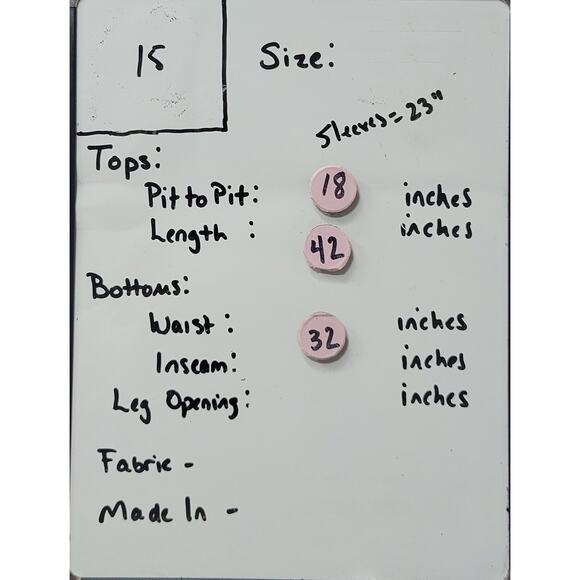 15
Size:
Sleeves = 23"
Tops:
Pit to Pit: 18 inches
Length : 42 inches
Bottoms:
Waist : 32 inches
Inseam: inches
Leg Opening: inches
Fabric -
Made In -